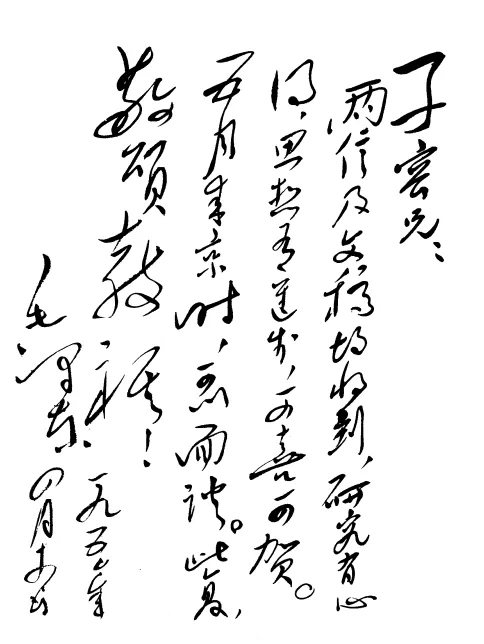 子兄：
两信及文稿均收到，研究有心
得，思想有进步，可喜可贺。
五月来京时，可面谈。此复，
敬颂教祺！
毛泽东
一九五年
四月十日